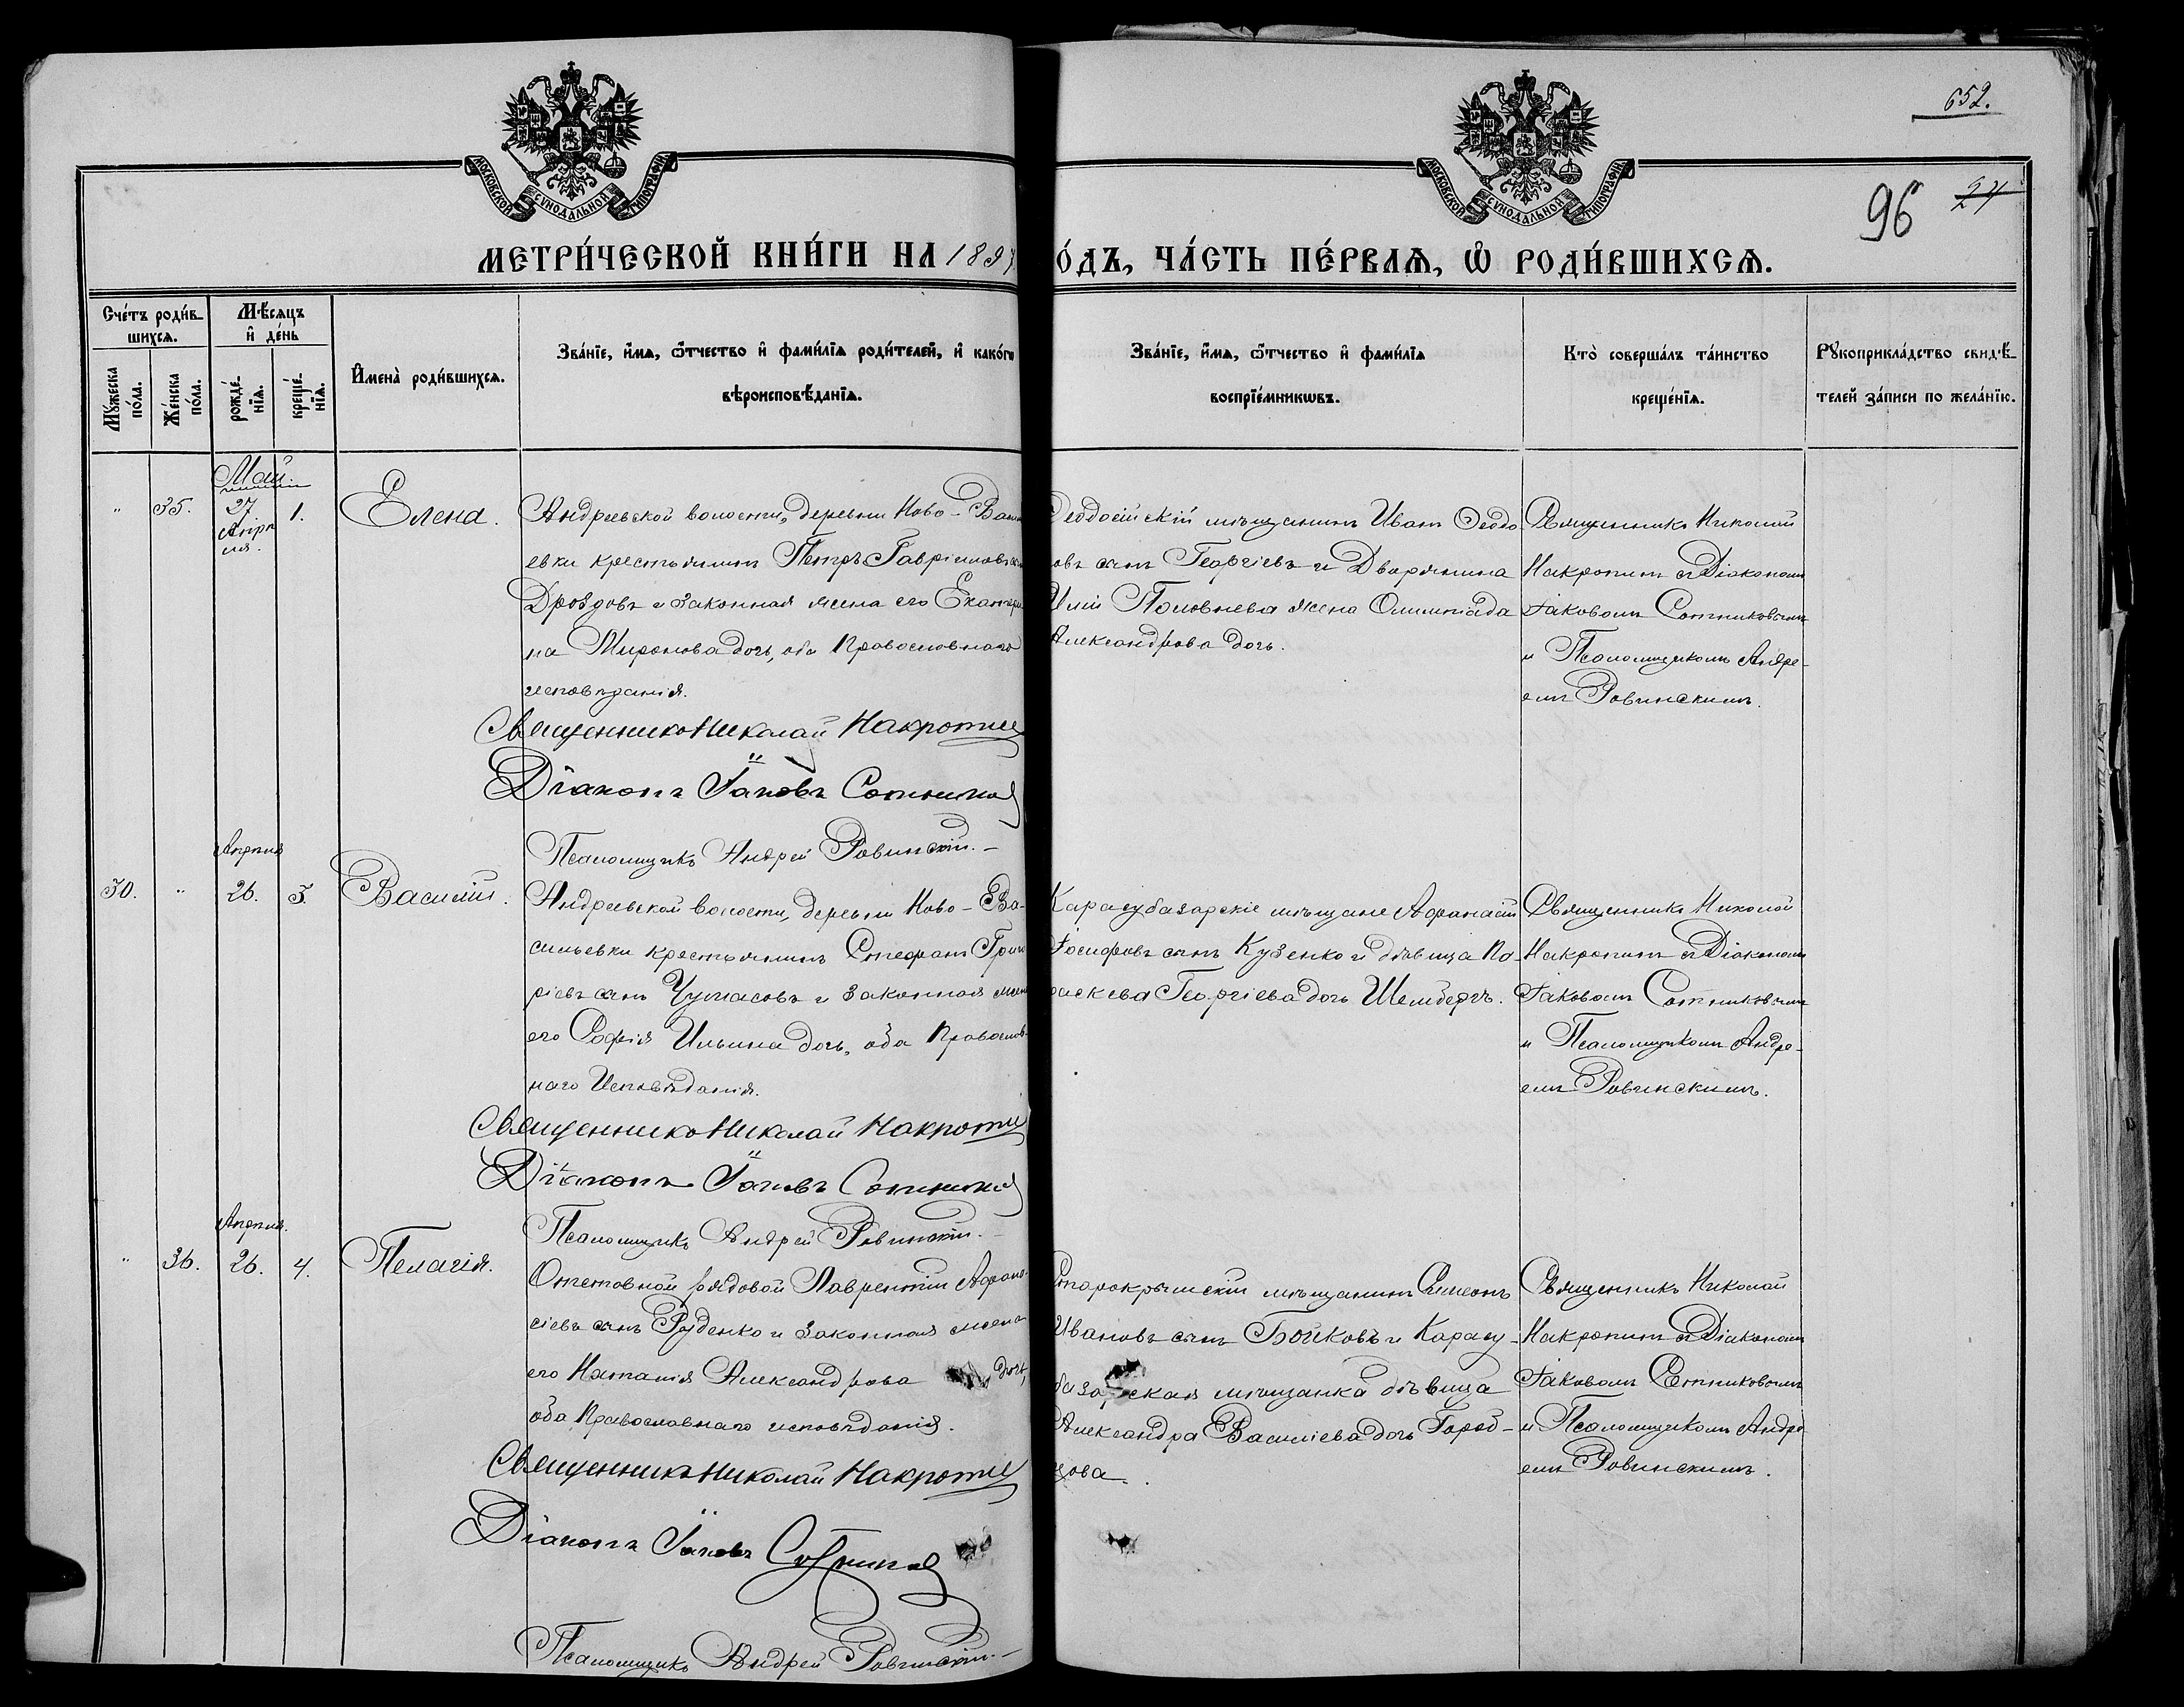 652.
96 24
МОСКОВСКОЙ СѴНОДАЛЬНОЙ ТИПОГРАФІИ
МОСКОВСКОЙ СѴНОДАЛЬНОЙ ТИПОГРАФІИ
МЕТРИ́ЧЕСКОЙ КНИ́ГИ НА 1897 О́ДЪ, ЧА́СТЬ ПЕ́РВАѦ, Ѡ҆ РОДИ́ВШИХСѦ.
Сче́тъ роди́в-
шихсѧ.
Мꙋжеска по́ла.
Же́нска по́ла.
Мѣ́сѧцъ
и҆ де́нь
рожде́-нїѧ.
креще́-нїѧ.
И҆мена̀ роди́вшихсѧ.
Зва́нїе, и҆́мѧ, ѻ҆́тчество и҆ фами́лїѧ роди́телей, и҆ како́гѡ
вѣроисповѣ́данїѧ.
Зва́нїе, и҆́мѧ, ѻ҆́тчество и҆ фами́лїѧ
воспрїе́мникѡвъ.
Кто̀ соверша́лъ та́инство
креще́нїѧ.
Рꙋкоприкла́дство свидѣ́-
телей за́писи по жела́нїю.
Май
" 35. 27 Апрѣля. 1. Елена.
Андреевской волости, деревни Ново-Васи
евки крестьянинъ Петръ Гавріиловъ
Дроздовъ и законная жена его Екатери
на Миронова дочь, оба Православнаго
исповѣданія.
Священникъ Николай Накропин
Діаконъ Іаковъ Сотников
Псаломщикъ Андрей Ровинскій.-
Ѳеодосійскій мѣщанинъ Иванъ Ѳеодо
овъ сынъ Георгіевъ и Дворянина
Иліи Половнева жена Олимпіада
Александрова дочь.
Священникъ Николай
Накропинъ съ Діакономъ
Іаковомъ Сотниковымъ
и Псаломщикомъ Андре-
емъ Ровинскимъ.
Апрѣля
30. " 26. 3. Василій.
Андреевской волости, деревни Ново-Ва-
сильевки крестьянинъ Стефанъ Григо
ріевъ сынъ Чумасовъ и законная жена
его Софія Ильина дочь, оба Православ-
наго Исповѣданія.
Священникъ Николай Накропин
Діаконъ Іаковъ Сотников
Псаломщикъ Андрей Ровинскій.-
Карасубазарскіе мѣщане Аѳанасій
Іосифовъ сынъ Кузенко и дѣвица Па
раскева Георгіева дочь Шембергъ.
Священникъ Николай
Накропинъ съ Діакономъ
Іаковомъ Сотниковымъ
и Псаломщикомъ Андре-
емъ Ровинскимъ.
Апрѣля.
" 36. 26. 4. Пелагія.
Отставной рядовой Лаврентій Аѳана-
сіевъ сынъ Руденко и законная жена
его Наталія Александрова дочь,
оба Православнаго исповѣданія.
Священникъ Николай Накропин
Діаконъ Іаковъ Сотников
Псаломщикъ Андрей Ровинскій.-
Старокрымскій мѣщанинъ Симеонъ
Ивановъ сынъ Бойковъ и Карасу-
базарская мѣщанка дѣвица
Александра Василіева дочь Город-
цова.
Священникъ Николай
Накропинъ съ Діакономъ
Іаковомъ Сотниковымъ
и Псаломщикомъ Андре
емъ Ровинскимъ.